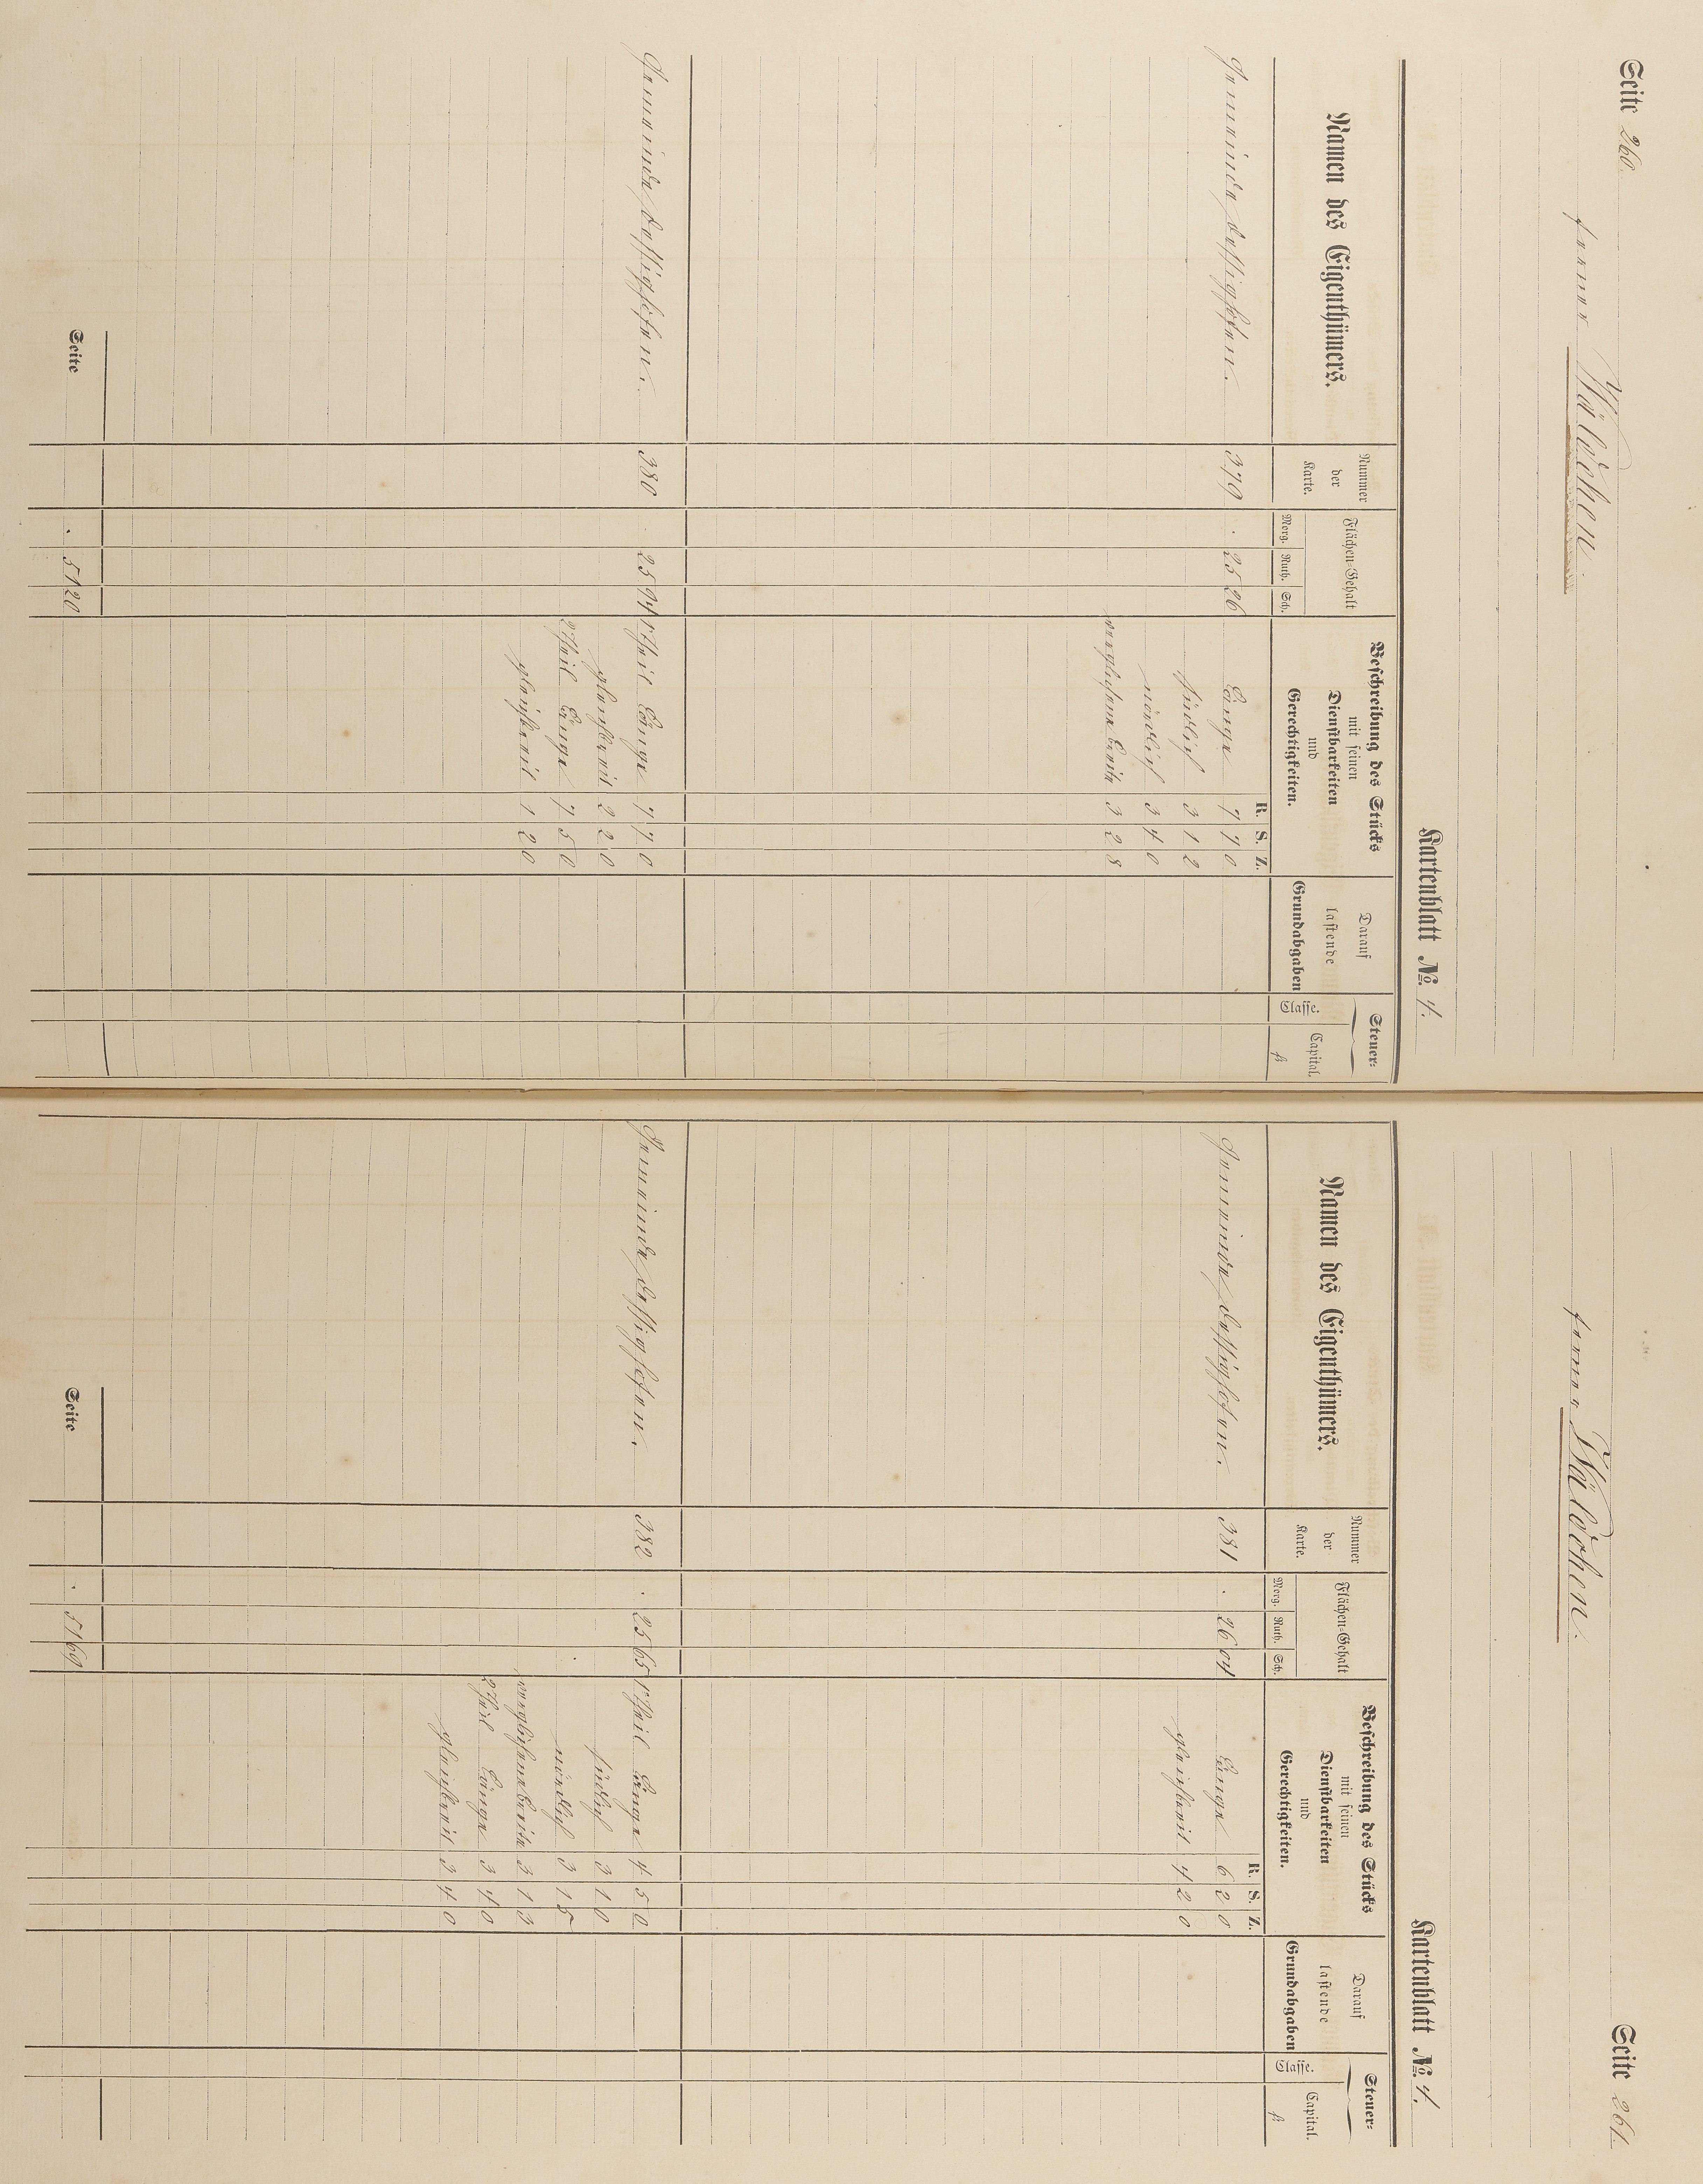 Seite 260.
ferner Wäldchen.
Kartenblatt No. 4.
Namen des Eigenthümers.
Nummer der Karte.
Flächen-Gehalt
Morg. Ruth. Sch.
Beschreibung des Stücks
mit seinen
Dienstbarkeiten
und
Gerechtigkeiten.
R. S. Z.
Darauf
lastende
Grundabgaben
Steuer-
Classe. Capital.
fl
Gemeinde Dessighofen. 379 . 25 26 Länge 7 7 0
südlich 3 1 2
nördlich 3 4 0
verglichene Breite 3 2 8
Gemeinde Dessighofen. 380 . 25 94 1r Theil Länge 7 7 0
gleichbreit 2 2 0
2r Theil Länge 7 5 0
gleichbreit 1 2 0
Seite . 51 20
Seite 261.
ferner Wäldchen.
Kartenblatt No. 4.
Namen des Eigenthümers.
Nummer der Karte.
Flächen-Gehalt
Morg. Ruth. Sch.
Beschreibung des Stücks
mit seinen
Dienstbarkeiten
und
Gerechtigkeiten.
R. S. Z.
Darauf
lastende
Grundabgaben
Steuer-
Classe. Capital.
fl
Gemeinde Dessighofen. 381 . 26 04 Länge 6 2 0
gleichbreit 4 2 0
Gemeinde Dessighofen. 382 . 25 65 1r Theil Länge 4 5 0
südlich 3 1 0
nördlich 3 1 5
verglichene Breite 3 1 3
2r Theil Länge 3 4 0
gleichbreit 3 4 0
Seite . 51 69